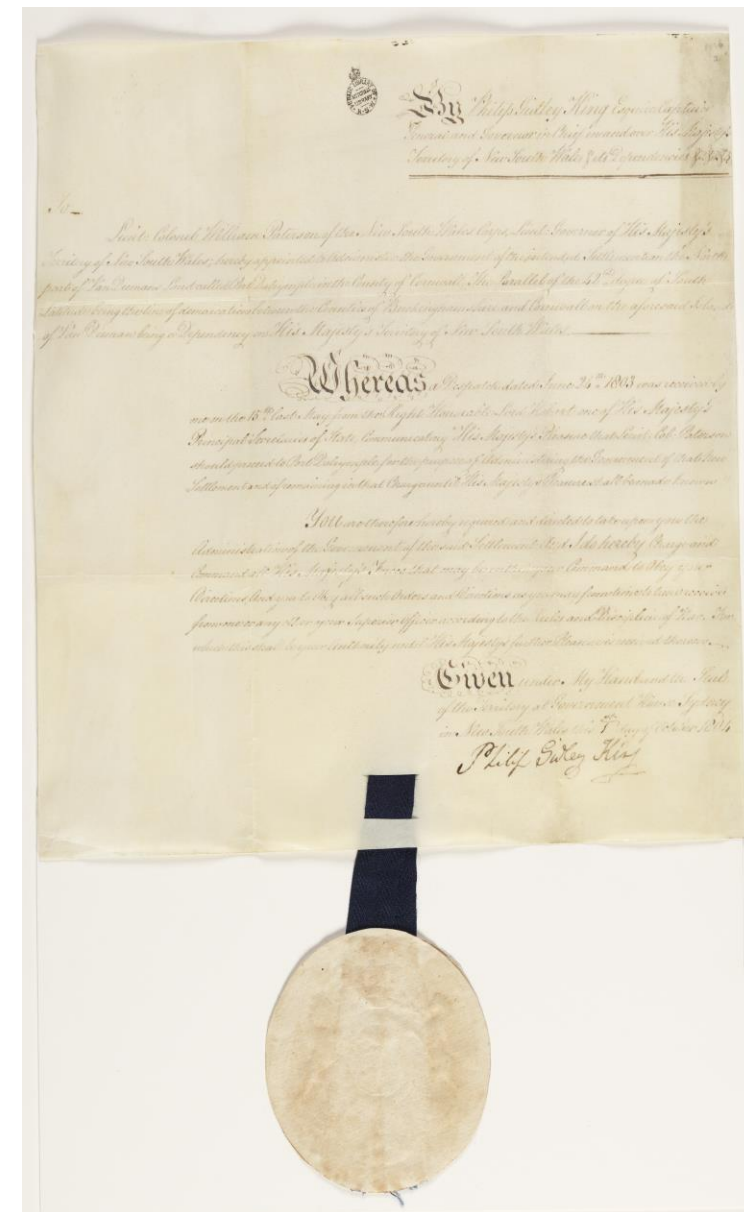 By Philip Gidley King Esquire Captain
General and Governor in Chief in and over His Majesty's
Territory of New South Wales & its Dependencies &c &c &c
To
Lieut. Colonel William Paterson of the New South Wales Corps, Lieut. Governor of His Majesty's
Territory of New South Wales, hereby appointed to the Government of the intended Settlement on the North
part of Van Diemans Land called Port Dalrymple in the County of Cornwall, The Parallel of the 42d degree of South
Latitude being the line of demarcation between the Counties of Buckinghamshire and Cornwall on the aforesaid Island
of Van Diemans being a Dependency on His Majesty's Territory of New South Wales
Whereas a Despatch dated June 24th 1803 was received by
me on the 15th last May from the Right Honorable Lord Hobart one of His Majesty's
Principal Secretaries of State, Communicating His Majesty's Pleasure that Lieut. Col. Paterson
should proceed to Port Dalrymple for the purpose of Administering the Government of that New
Settlement and of remaining in that Charge until His Majesty's Pleasure shall be made known
You are therefore hereby required and directed to take upon you the
Administration of the Government of the said Settlement And I do hereby Charge and
Command all His Majesty's that may be under your Command to Obey your
Directions, And you to Obey all such Orders and Directions as you may from time to time receive
from me or any other your Superior Officer according to the Rules and Discipline of War. For
which this shall be your Authority until His Majesty's further Pleasure is
Given under My Hand and the Seal
of the Territory at Government House Sydney
in New South Wales this day of October 1804
Philip Gidley King